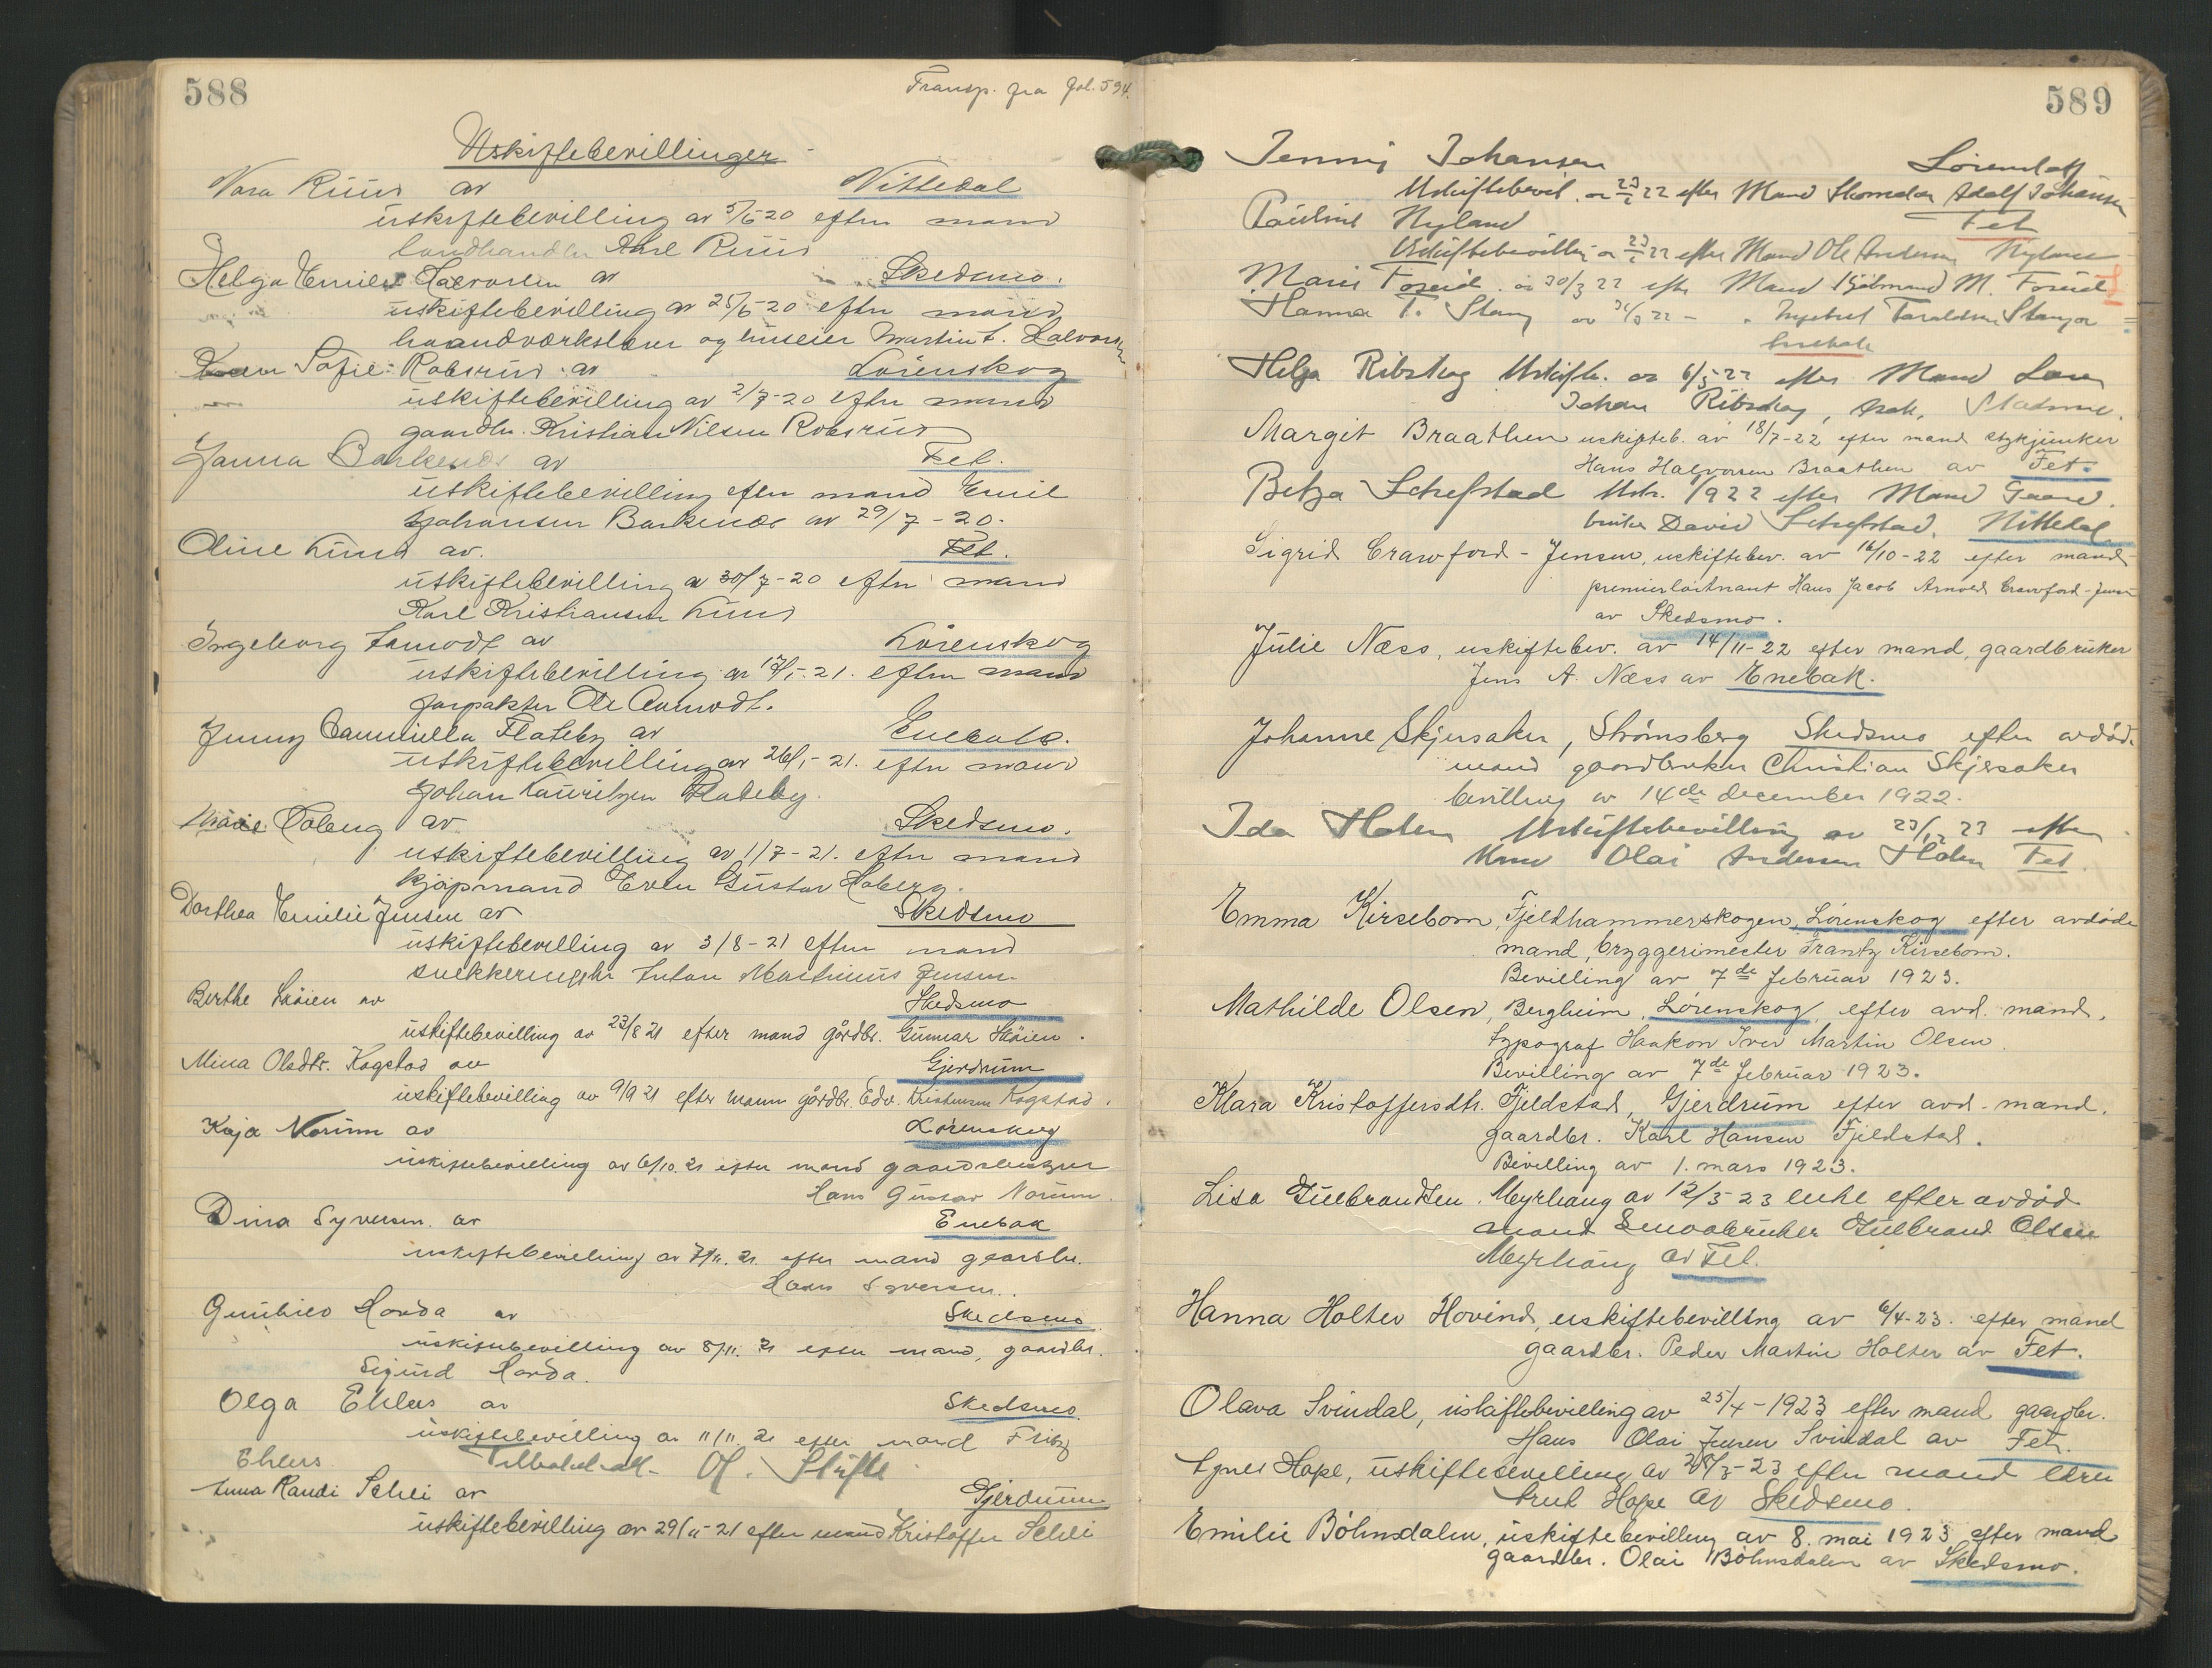 588
Transp. fra fol. 594.
Uskiftebevillinger
Nara Ruud av Nittedal
uskiftebevilling av 5/6 20 efter mand
landhandler Ruud
Helga Emilie Halvorsen av Skedsmo.
uskiftebevilling av 25/6-20 efter mand
haandværksl og huseier Martin L. Halvorsen
Sofie Robsrud av Lørenskog
uskiftebevilling av 2/7-20 efter mand
gaardbr. Kristian Nilsen Robsrud
Janna Barkenæs av Fet.
uskiftebevilling efter mand Emil
Johansen Barkenæs av 29/7-20.
Oline Lund av. Fet.
uskiftebevilling av 30/7-20 efter mand
Karl Kristiansen Lund
Ingeborg Aamodt av Lørenskog
uskiftebevilling av efter mand
forpakter Ole Aamodt.
Jenny Camilella Flateby av Enebak.
uskiftebevilling av 26/1-21. efter mand
Johan Lauritzen Flateby.
Marie Hoberg av Skedsmo.
uskiftebevilling av 1/7-21. efter mand
kjøpmand Even Gustav Hoberg.
Dorthea Emilie Jensen av Skedsmo
uskiftebevilling av 3/8-21 efter mand
snekkermester Anton Martinius Jensen
Berthe Skøien av Skedsmo
uskiftebevilling av 23/8 21 efter mand gårdbr. Gunnar Skøien.
Mina Olsdtr. Kogstad av Gjerdrum
uskiftebevilling av 9/9 21 efter mann gårdbr. Edv. Kristensen Kogstad.
Kaja Norum av Lørenskog
uskiftebevilling av 6/10. 21 efter mand gaardbruger
Hans Gustav Norum.
Dina Syversen. av Enebak
uskiftebevilling av 7/11. 21. efter mand gaardbr.
Hans Syversen.
Gunhild Horda av Skedsmo
uskiftebevilling av 8/11. 21 efter mand, gaardbr.
Sigurd Horda.
Olga Ehlers av Skedsmo
uskiftebevilling av 11/11. 21 efter mand Fritz
Ehlers. Of. Skifte
Anna Randi Schei av Gjerdrum
uskiftebevilling av 29/11-21 efter mand Kristoffer Schei
589
Jenny Johansen Lørenskog
Uskiftebevil. av 22 efter Mand Adolf Johansen
Pauline Nyland Fet
Uskiftebevilling av 22 efter Mand Ole Andersen Nyland
Marie Foseid av 30/3 22 efter Mand Kjøbmand M. Foseid
Hanna T. Stang av 22 - " Taraldsen Stang
Enebak
Helga Ribskog Uskifte. av 6/5 22 efter Mand
Johan Ribskog,
Margit Braathen uskifteb. av 18/7-22 efter mand stykjunker
Hans Halvorsen Braathen av Fet.
Betza Schefstad Usk. 1922 efter Mand Gaard
bruker David Schefstad, Nittedal
Sigrid Crawford-Jensen, uskiftebev. av 16/10-22 efter mand
premierløitnant Hans Jacob Arnold Crawford-Jensen
av Skedsmo.
Julie Næss, uskiftebev. av 14/11-22 efter mand, gaardbruker
Jens A. Næss av Enebak.
Johanne Skjersaker, Strømsberg Skedsmo efter avdød
mand gaardbruker Christian Skjersaker
bevilling av 14de december 1922.
Ida Holen Uskiftebevilling av 23/12 23 efter
Mand Olai Andersen Holen Fet.
Emma Kirsebom, Fjeldhammerskogen, Lørenskog efter avdøde
mand, bryggerimester Frantz Kirsebom.
Bevilling av 7de februar 1923.
Mathilde Olsen, Bergheim, Lørenskog, efter avd. mand,
typograf Haakon Iver Martin Olsen.
Bevilling av 7de februar 1923.
Klara Kristoffersdtr. Fjeldstad, Gjerdrum efter avd. mand,
gaardbr. Karl Hansen Fjeldstad.
Bevilling av 1. mars 1923.
Lisa Gulbrandsen. Myrhaug av 12/3-23 enke efter avdød
mand Smaabruker Gulbrand Olsen
Myrhaug av Fet.
Hanna Holter Hovind, uskiftebevilling av 6/4-23. efter mand
gaardbr. Peder Martin Holter av Fet.
Olava Svindal, uskiftebevilling av 25/4-1923 efter mand gaardbr.
Hans Olai Jensen Svindal av Fet.
Agnes Hope, uskiftebevilling av efter mand
Hope av Skedsmo.
Emilie Böhnsdalen, uskiftebevilling av 8. mai 1923 efter mand
gaardbr. Olai Böhnsdalen av Skedsmo.